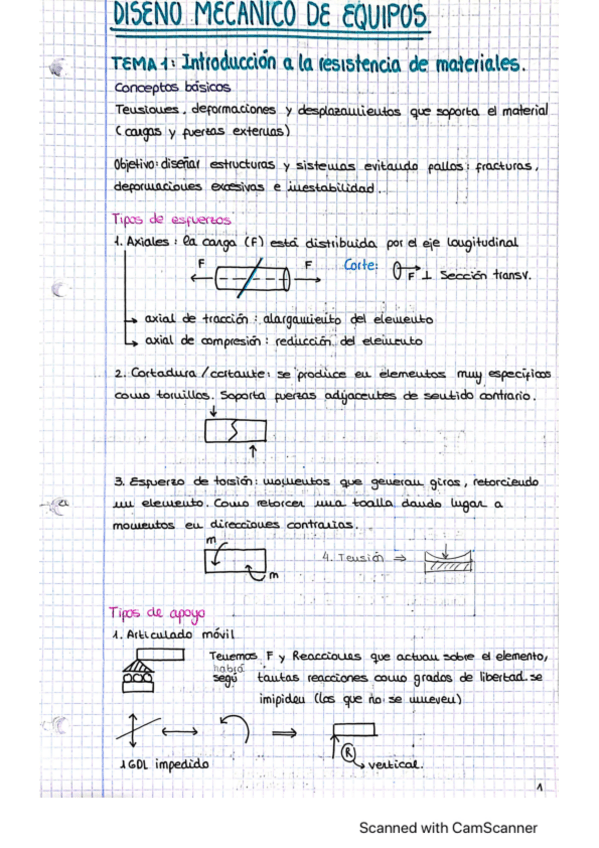 DISEÑO MECÁNICO DE EQUIPOS
TEMA 1: Introducción a la resistencia de materiales.
Conceptos básicos
Tensiones, deformaciones y desplazamientos que soporta el material
(cargas y fuerzas externas)
Objetivo: diseñar estructuras y sistemas evitando fallos: fracturas,
deformaciones excesivas e inestabilidad.
Tipos de esfuerzos
1. Axiales: la carga (F) está distribuida por el eje longitudinal
F F Corte: F ⊥ sección transv.
axial de tracción: alargamiento del elemento
axial de compresión: reducción del elemento
2. Cortadura / cortante: se produce en elementos muy específicos
como tornillos. Soporta fuerzas adyacentes de sentido contrario.
3. Esfuerzo de torsión: momentos que generan giros, retorciendo
un elemento. Como retorcer una toalla dando lugar a
momentos en direcciones contrarias.
m
4. Tensión ⇒
m
Tipos de apoyo
1. Articulado móvil
Tenemos F y Reacciones que actuan sobre el elemento,
habrá
segú tantas reacciones como grados de libertad se
impiden (los que no se mueven)
R
1 GDL impedido
vertical.
1
Scanned with CamScanner